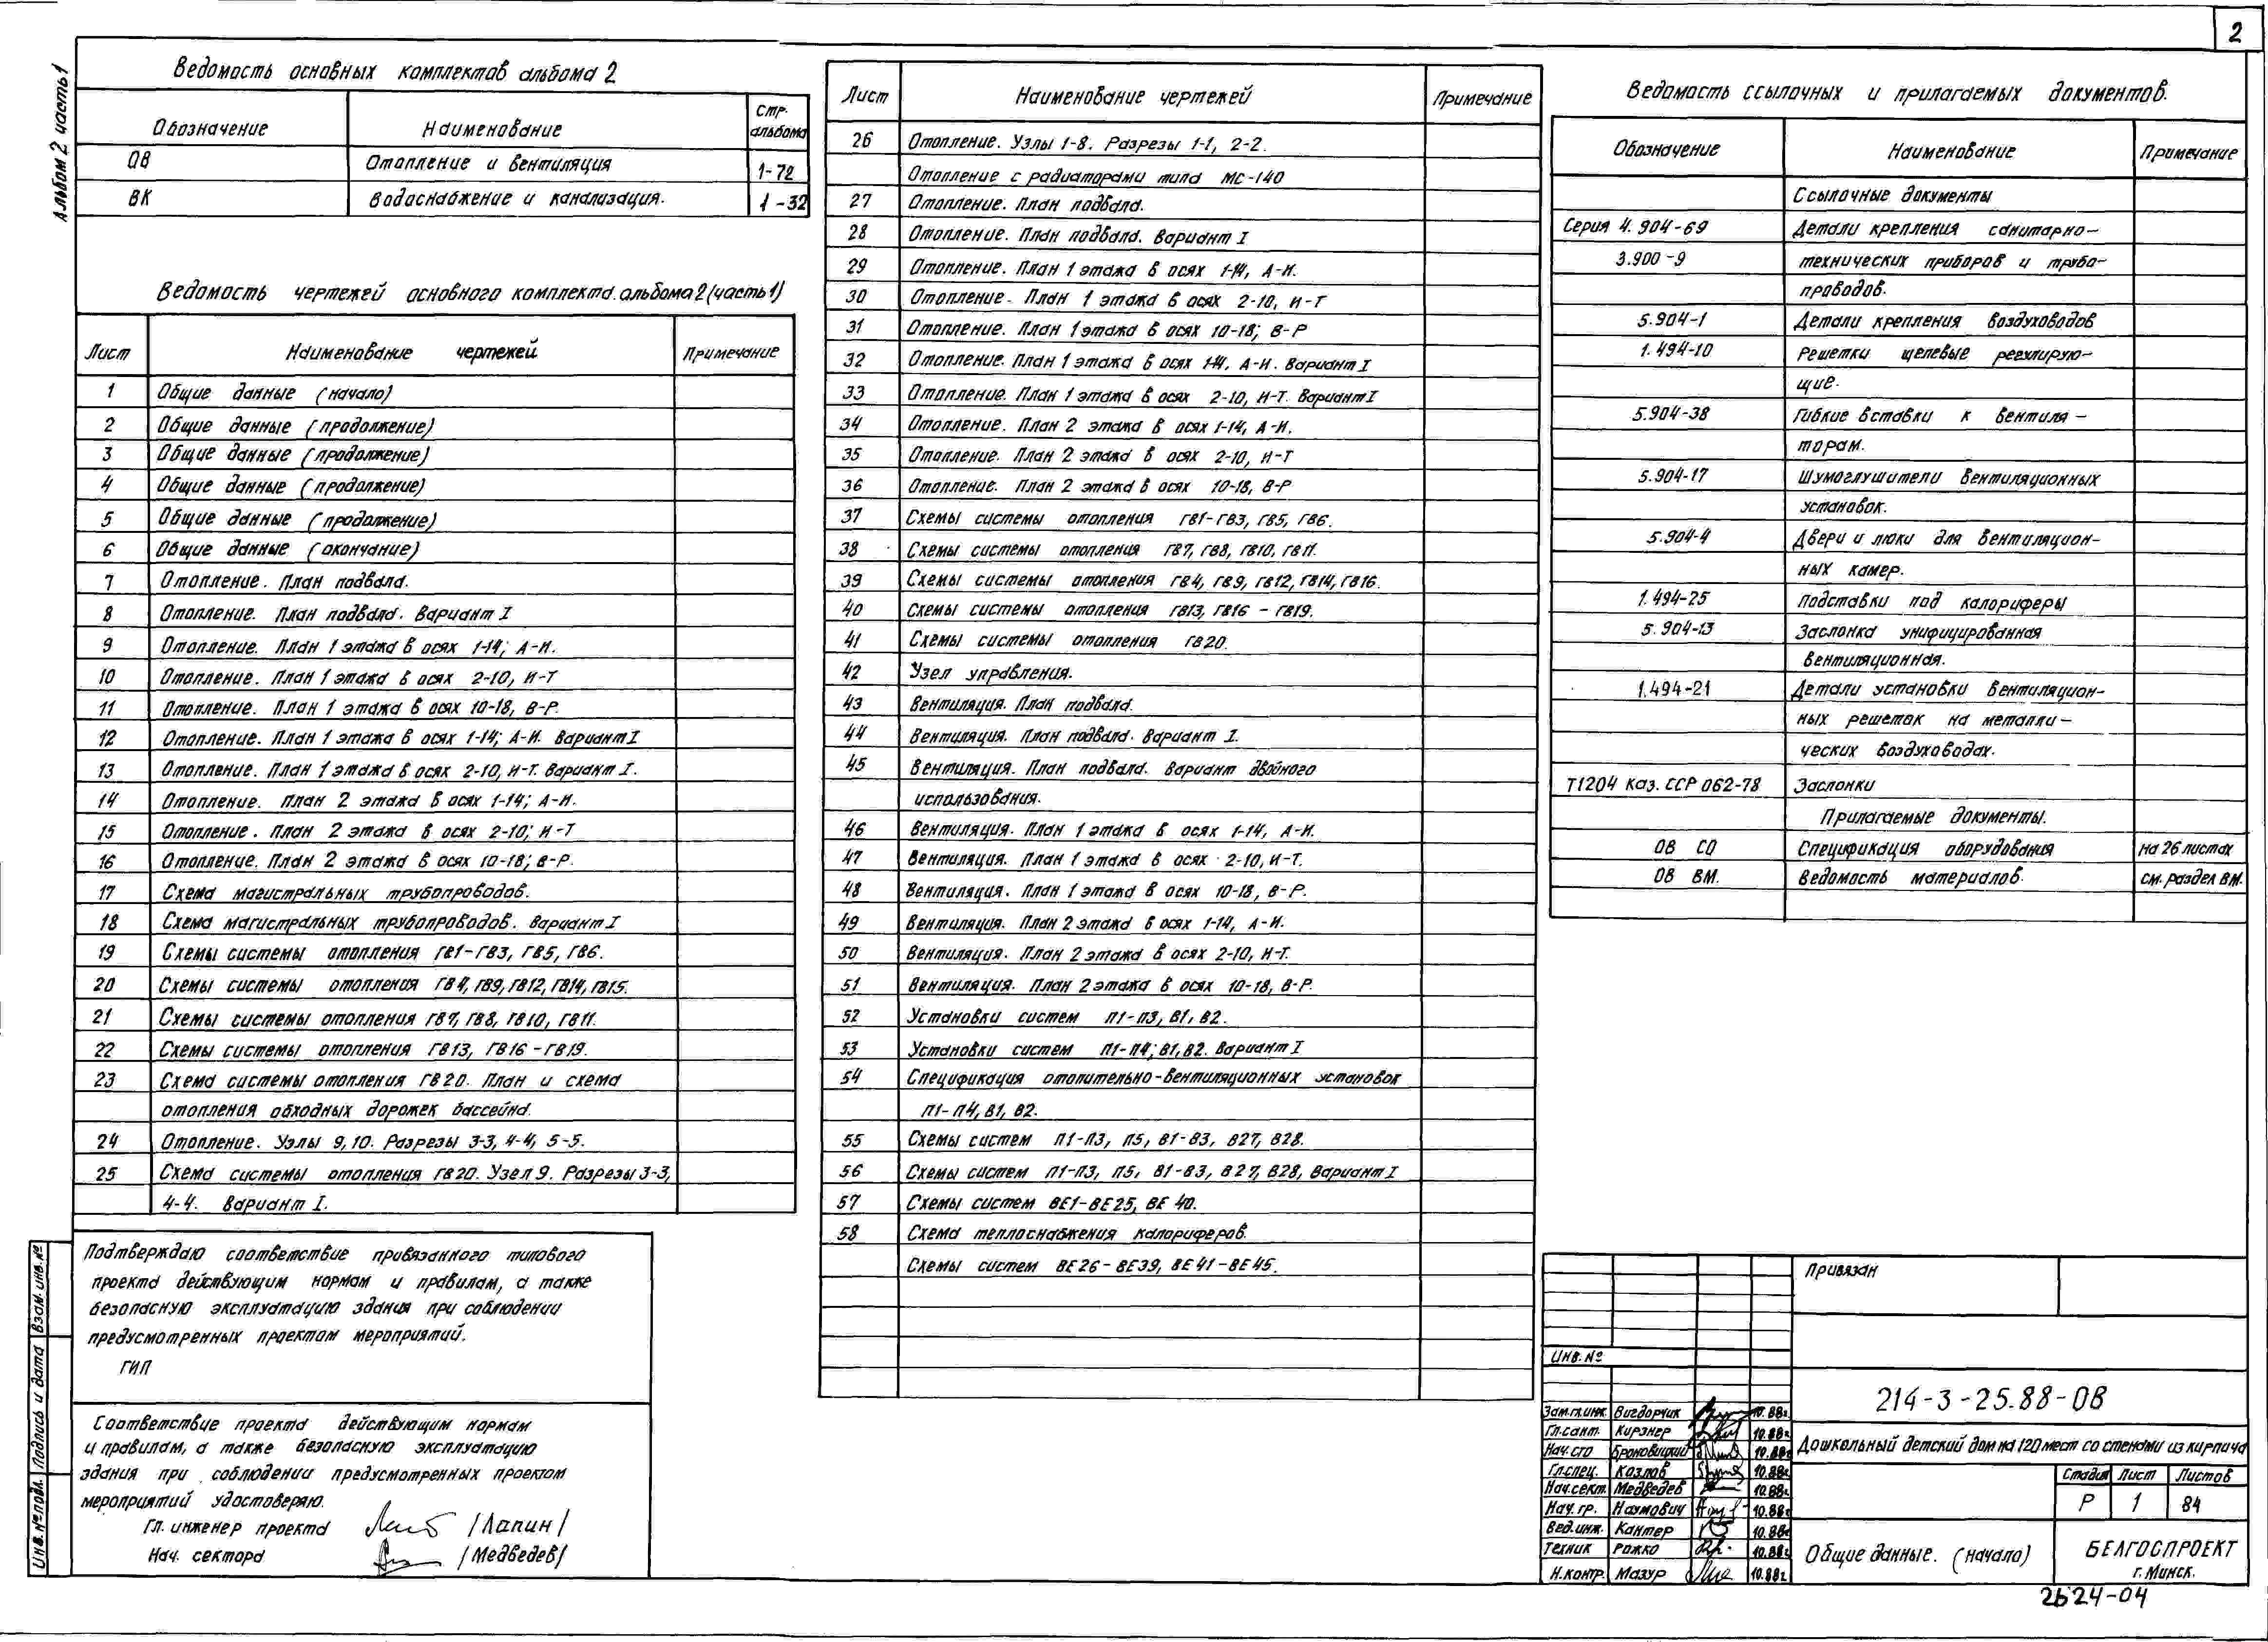 2
Альбом 2 часть 1
Ведомость основных комплектов альбома 2
Обозначение Наименование Стр. альбома
ОВ Отопление и вентиляция 1-72
ВК Водоснабжение и канализация. 1-32
Ведомость чертежей основного комплекта альбома 2 (часть 1)
Лист Наименование чертежей Примечание
1 Общие данные (начало)
2 Общие данные (продолжение)
3 Общие данные (продолжение)
4 Общие данные (продолжение)
5 Общие данные (продолжение)
6 Общие данные (окончание)
7 Отопление. План подвала.
8 Отопление. План подвала. Вариант I
9 Отопление. План 1 этажа в осях 1-14; А-И.
10 Отопление. План 1 этажа в осях 2-10, И-Т
11 Отопление. План 1 этажа в осях 10-18, В-Р.
12 Отопление. План 1 этажа в осях 1-14; А-И. Вариант I
13 Отопление. План 1 этажа в осях 2-10, И-Т. Вариант I.
14 Отопление. План 2 этажа в осях 1-14; А-И.
15 Отопление. План 2 этажа в осях 2-10; И-Т
16 Отопление. План 2 этажа в осях 10-18; В-Р.
17 Схема магистральных трубопроводов.
18 Схема магистральных трубопроводов. Вариант I
19 Схемы системы отопления ГВ1-ГВ3, ГВ5, ГВ6.
20 Схемы системы отопления ГВ4, ГВ9, ГВ12, ГВ14, ГВ15.
21 Схемы системы отопления ГВ7, ГВ8, ГВ10, ГВ11.
22 Схемы системы отопления ГВ13, ГВ16-ГВ19.
23 Схема системы отопления ГВ20. План и схема
отопления обходных дорожек бассейна.
24 Отопление. Узлы 9, 10. Разрезы 3-3, 4-4, 5-5.
25 Схема системы отопления ГВ20. Узел 9. Разрезы 3-3,
4-4. Вариант I.
Подтверждаю соответствие привязанного типового
проекта действующим нормам и правилам, а также
безопасную эксплуатацию здания при соблюдении
предусмотренных проектом мероприятий.
ГИП
Соответствие проекта действующим нормам
и правилам, а также безопасную эксплуатацию
здания при соблюдении предусмотренных проектом
мероприятий удостоверяю.
Гл. инженер проекта /Лапин/
Нач. сектора /Медведев/
Инв. № подл. Подпись и дата Взам. инв. №
Лист Наименование чертежей Примечание
26 Отопление. Узлы 1-8. Разрезы 1-1, 2-2.
Отопление с радиаторами типа МС-140
27 Отопление. План подвала.
28 Отопление. План подвала. Вариант I
29 Отопление. План 1 этажа в осях 1-14, А-И.
30 Отопление. План 1 этажа в осях 2-10, И-Т
31 Отопление. План 1 этажа в осях 10-18; В-Р
32 Отопление. План 1 этажа в осях 1-14, А-И. Вариант I
33 Отопление. План 1 этажа в осях 2-10, И-Т. Вариант I
34 Отопление. План 2 этажа в осях 1-14, А-И.
35 Отопление. План 2 этажа в осях 2-10, И-Т
36 Отопление. План 2 этажа в осях 10-18, В-Р
37 Схемы системы отопления ГВ1-ГВ3, ГВ5, ГВ6.
38 Схемы системы отопления ГВ7, ГВ8, ГВ10, ГВ11.
39 Схемы системы отопления ГВ4, ГВ9, ГВ12, ГВ14, ГВ16.
40 Схемы системы отопления ГВ13, ГВ16 - ГВ19.
41 Схемы системы отопления ГВ20.
42 Узел управления.
43 Вентиляция. План подвала.
44 Вентиляция. План подвала. Вариант I.
45 Вентиляция. План подвала. Вариант двойного
использования.
46 Вентиляция. План 1 этажа в осях 1-14, А-И.
47 Вентиляция. План 1 этажа в осях 2-10, И-Т.
48 Вентиляция. План 1 этажа в осях 10-18, В-Р.
49 Вентиляция. План 2 этажа в осях 1-14, А-И.
50 Вентиляция. План 2 этажа в осях 2-10, И-Т.
51 Вентиляция. План 2 этажа в осях 10-18, В-Р.
52 Установки систем П1-П3, В1, В2.
53 Установки систем П1-П4; В1, В2. Вариант I
54 Спецификация отопительно-вентиляционных установок
П1-П4, В1, В2.
55 Схемы систем П1-П3, П5, В1-В3, В27, В28.
56 Схемы систем П1-П3, П5, В1-В3, В27, В28, Вариант I
57 Схемы систем ВЕ1-ВЕ25, ВЕ 40.
58 Схема теплоснабжения калориферов.
Схемы систем ВЕ26-ВЕ39, ВЕ41-ВЕ45.
Ведомость ссылочных и прилагаемых документов.
Обозначение Наименование Примечание
Ссылочные документы
Серия 4.904-69 Детали крепления санитарно-
3.900-9 технических приборов и трубо-
проводов.
5.904-1 Детали крепления воздуховодов
1.494-10 Решетки щелевые регулирую-
щие.
5.904-38 Гибкие вставки к вентиля-
торам.
5.904-17 Шумоглушители вентиляционных
установок.
5.904-4 Двери и люки для вентиляцион-
ных камер.
1.494-25 Подставки под калориферы
5.904-13 Заслонка унифицированная
вентиляционная.
1.494-21 Детали установки вентиляцион-
ных решеток на металли-
ческих воздуховодах.
Т1204 Каз. ССР 062-78 Заслонки
Прилагаемые документы.
ОВ СО Спецификация оборудования на 26 листах
ОВ ВМ. Ведомость материалов. см. раздел ВМ.
Привязан
Инв. №
214-3-25.88-ОВ
Зам.гл.инж. Вигдорчик 10.88г.
Гл.сант. Кирзнер 10.88г.
Нач.сто Броновицкий 10.88г.
Гл.спец. Козлов 10.88г.
Нач.сект. Медведев 10.88г.
Нач.гр. Наумович 10.88г.
Вед.инж. Кантер 10.88г.
Техник Рожко 10.88г.
Н.контр. Мазур 10.88г.
Дошкольный детский дом на 120 мест со стенами из кирпича
Стадия Лист Листов
Р 1 84
Общие данные. (начало)
БЕЛГОСПРОЕКТ
г. Минск.
2624-04